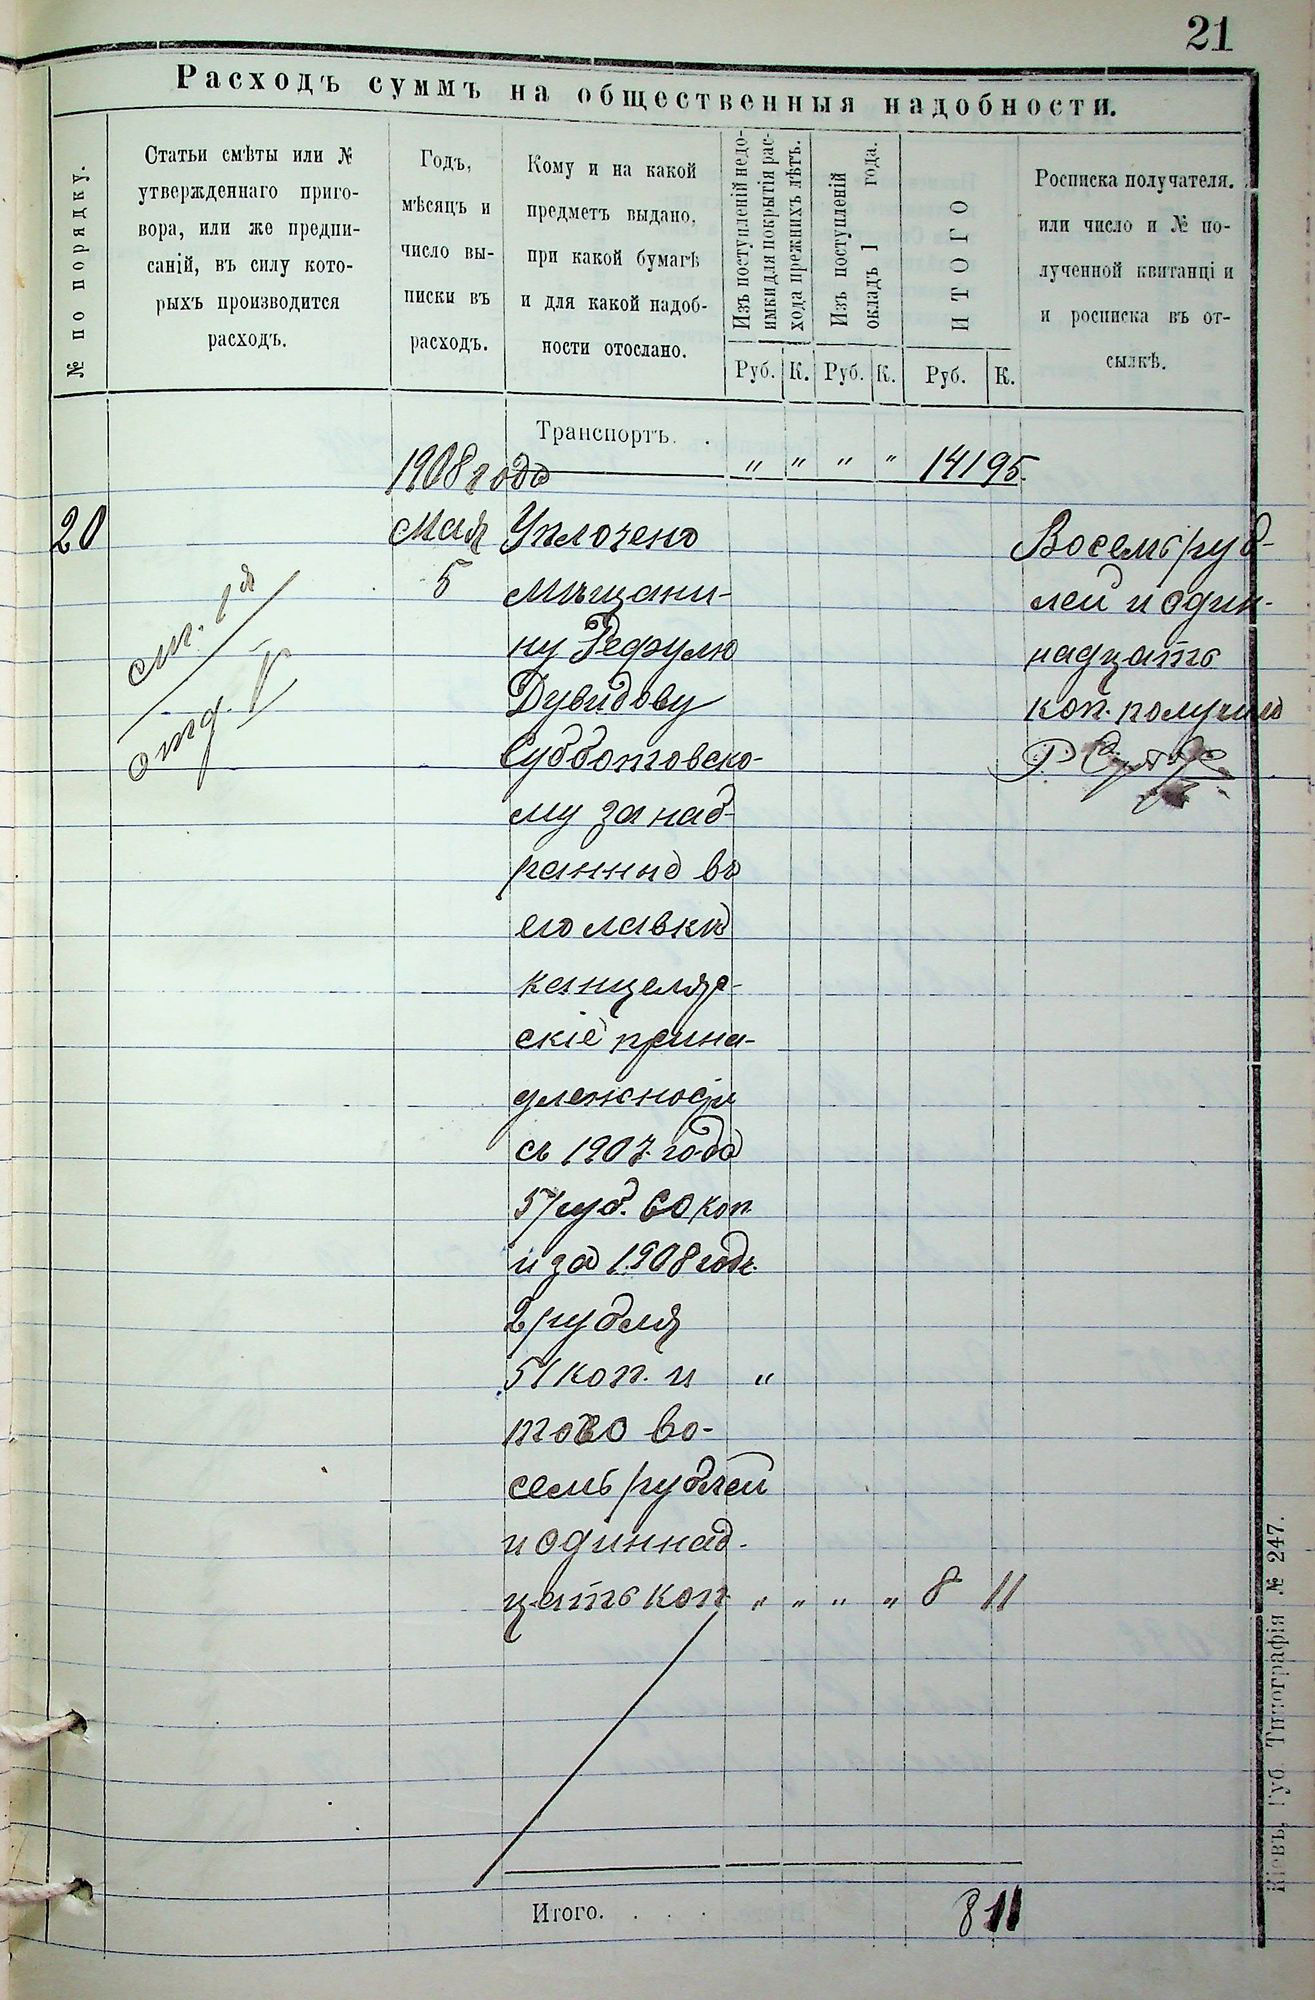 21
Расходъ суммъ на общественныя надобности.
№ по порядку.
Статьи смѣты или №
утвержденнаго приго-
вора, или же предпи-
саній, въ силу кото-
рыхъ производится
расходъ.
Годъ,
мѣсяцъ и
число вы-
писки въ
расходъ.
Кому и на какой
предметъ выдано,
при какой бумагѣ
и для какой надоб-
ности отослано.
Изъ поступленій недо-
имки для покрытія рас-
хода прежнихъ лѣтъ.
Изъ поступленій
окладъ 1 года.
ИТОГО
Росписка получателя.
или число и № по-
лученной квитанці и
и росписка въ от-
сылкѣ.
Руб. К. Руб. К. Руб. К.
Транспортъ. .
1908 года " " " " 141 95.
20 Мая Уплочено Восемь руб-
5 мѣщани- лей и один-
см. 1я ну Рефулю надцать
отд. V Дувидову коп. получилъ
Субботовско-
му за наб-
ранные въ
его лавкѣ
канцеляр-
скіе прина-
длежности
съ 1907 года
5 руб. 60 коп.
и за 1908 годъ
2 рубля
51 коп. и "
того во-
семь рублей
и одиннад-
цать коп. " " " " 8 11
Итого. . . . 8 11
Кіевъ, Губ. Типографія № 247.